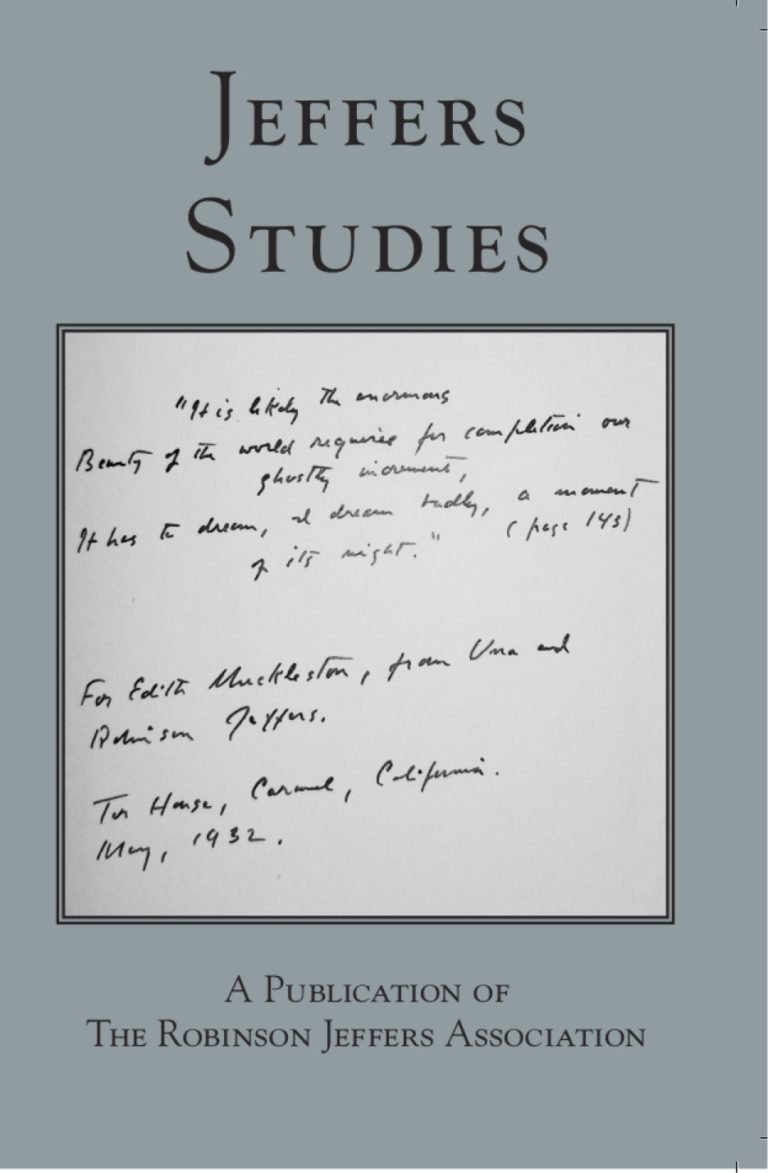 JEFFERS
STUDIES
"It is likely the enormous
Beauty of the world requires for completion our
ghostly increment,
It has to dream, and dream badly, a moment
of its night." (page 143)
For Edith Muckleston, from Una and
Robinson Jeffers.
Tor House, Carmel, California.
May, 1932.
A PUBLICATION OF
THE ROBINSON JEFFERS ASSOCIATION